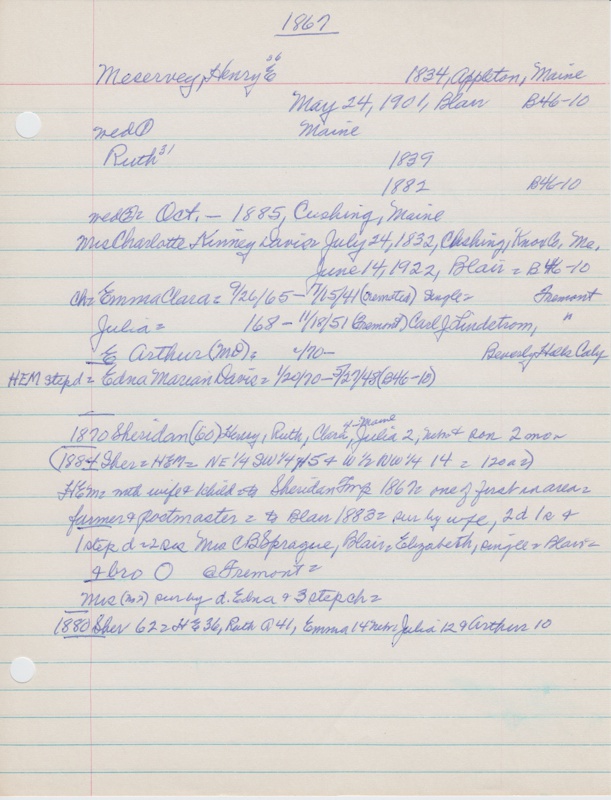 1867
Meservey, Henry E 36 1834, Appleton, Maine
May 24, 1901, Blair B46-10
wed ① Maine
Ruth 31 1839
1882 B46-10
wed ② = Oct. — 1885, Cushing, Maine
Mrs Charlotte Kinney Davis = July 24, 1832, Cushing, Knox Co, Me,
June 14, 1922, Blair = B46-10
ch = Emma Clara = 9/26/65 - 7/15/41 (cremated) Single = Fremont
Julia = 168 - 11/18/51 (Fremont) Carl J. Lindstrom, "
E Arthur (MD) = 2/70 - Beverly Hills Caly
HEM step d = Edna Marian Davis = 1/20/70 - 5/27/48 (B46-10)
1870 Sheridan (60) Henry, Ruth, Clara, 4-Maine Julia 2, Nebr & son 2 mo -
(1884 Sher = HEM = NE 1/4 SW 1/4 15 & W 1/2 NW 1/4 14 = 120 a =)
HEM = with wife & 1 child to Sheridan Twp 1867 = one of first in area =
farmer & postmaster = to Blair 1883 = sur by wife, 2 d 1 s &
1 step d = 2 sis Mrs C B Sprague, Blair, Elizabeth, single = Blair =
& bro O @ Fremont =
Mrs (no 2) sur by d. Edna & 3 step ch =
1880 Sher 62 = H E 36, Ruth A 41, Emma 14 Nebr Julia 12 & Arthur 10